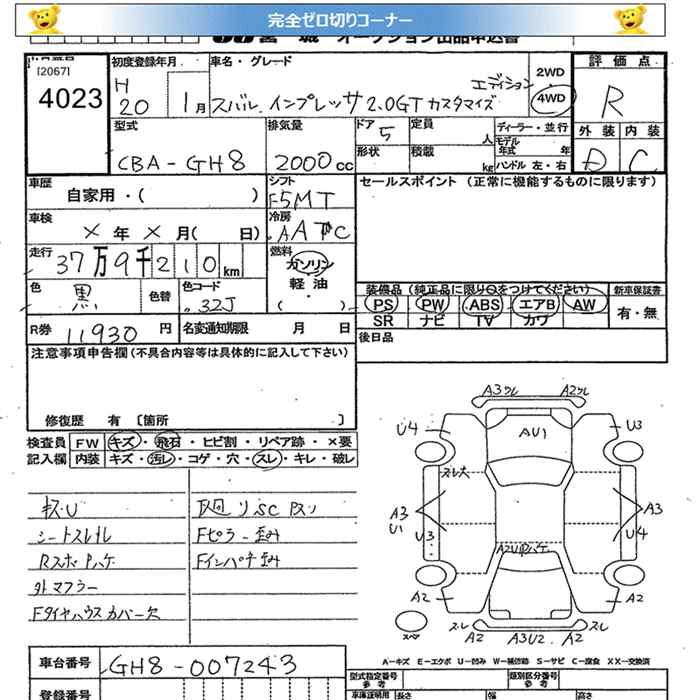 完全ゼロ切りコーナー
オークション出品申込書
[2067]
4023
初度登録年月
H
20 1月
車名・グレード
エディション
スバル インプレッサ 2.0GT カスタマイズ
2WD
4WD
評価点
R
外装 内装
D C
型式
CBA-GH8
排気量
2000cc
ドア
5
定員
人
形状
積載
kg
ディーラー・並行
モデル
年式 年
ハンドル 左・右
車歴
自家用・( )
シフト
F5MT
セールスポイント (正常に機能するものに限ります)
車検
× 年 × 月( 日)
冷房
AAC
走行
37万9千210km
燃料
ガソリン
軽油
( )
色
黒
色替
色コード
32J
R券 11930 円
名変通知期限 月 日
装備品 (純正品に限り○をつけてください) 新車保証書
PS PW ABS エアB AW
SR ナビ TV カワ
有・無
後日品
注意事項申告欄(不具合内容等は具体的に記入して下さい)
修復歴 有 [箇所 ]
検査員 FW キズ・飛石・ヒビ割・リペア跡・×要
記入欄 内装 キズ・汚レ・コゲ・穴・スレ・キレ・破レ
キズU
シートスレ
Rスポハゲ
外マフラー
Fタイヤハウスカバー欠
Fピラー歪み
Fインパチ歪み
A3 A2
U4 AU1 U3
スレ大
A3
U1
U3
A3
U4
A2 A2
スレ スレ
A2 A3U2 A2
スペア
A-キズ E-エクボ U-凹み W-補修跡 S-サビ C-腐食 XX-交換済
車台番号 GH8-007243
登録番号
型式指定番号
参考
類別区分番号
参考
車庫証明用 長さ 幅 高さ